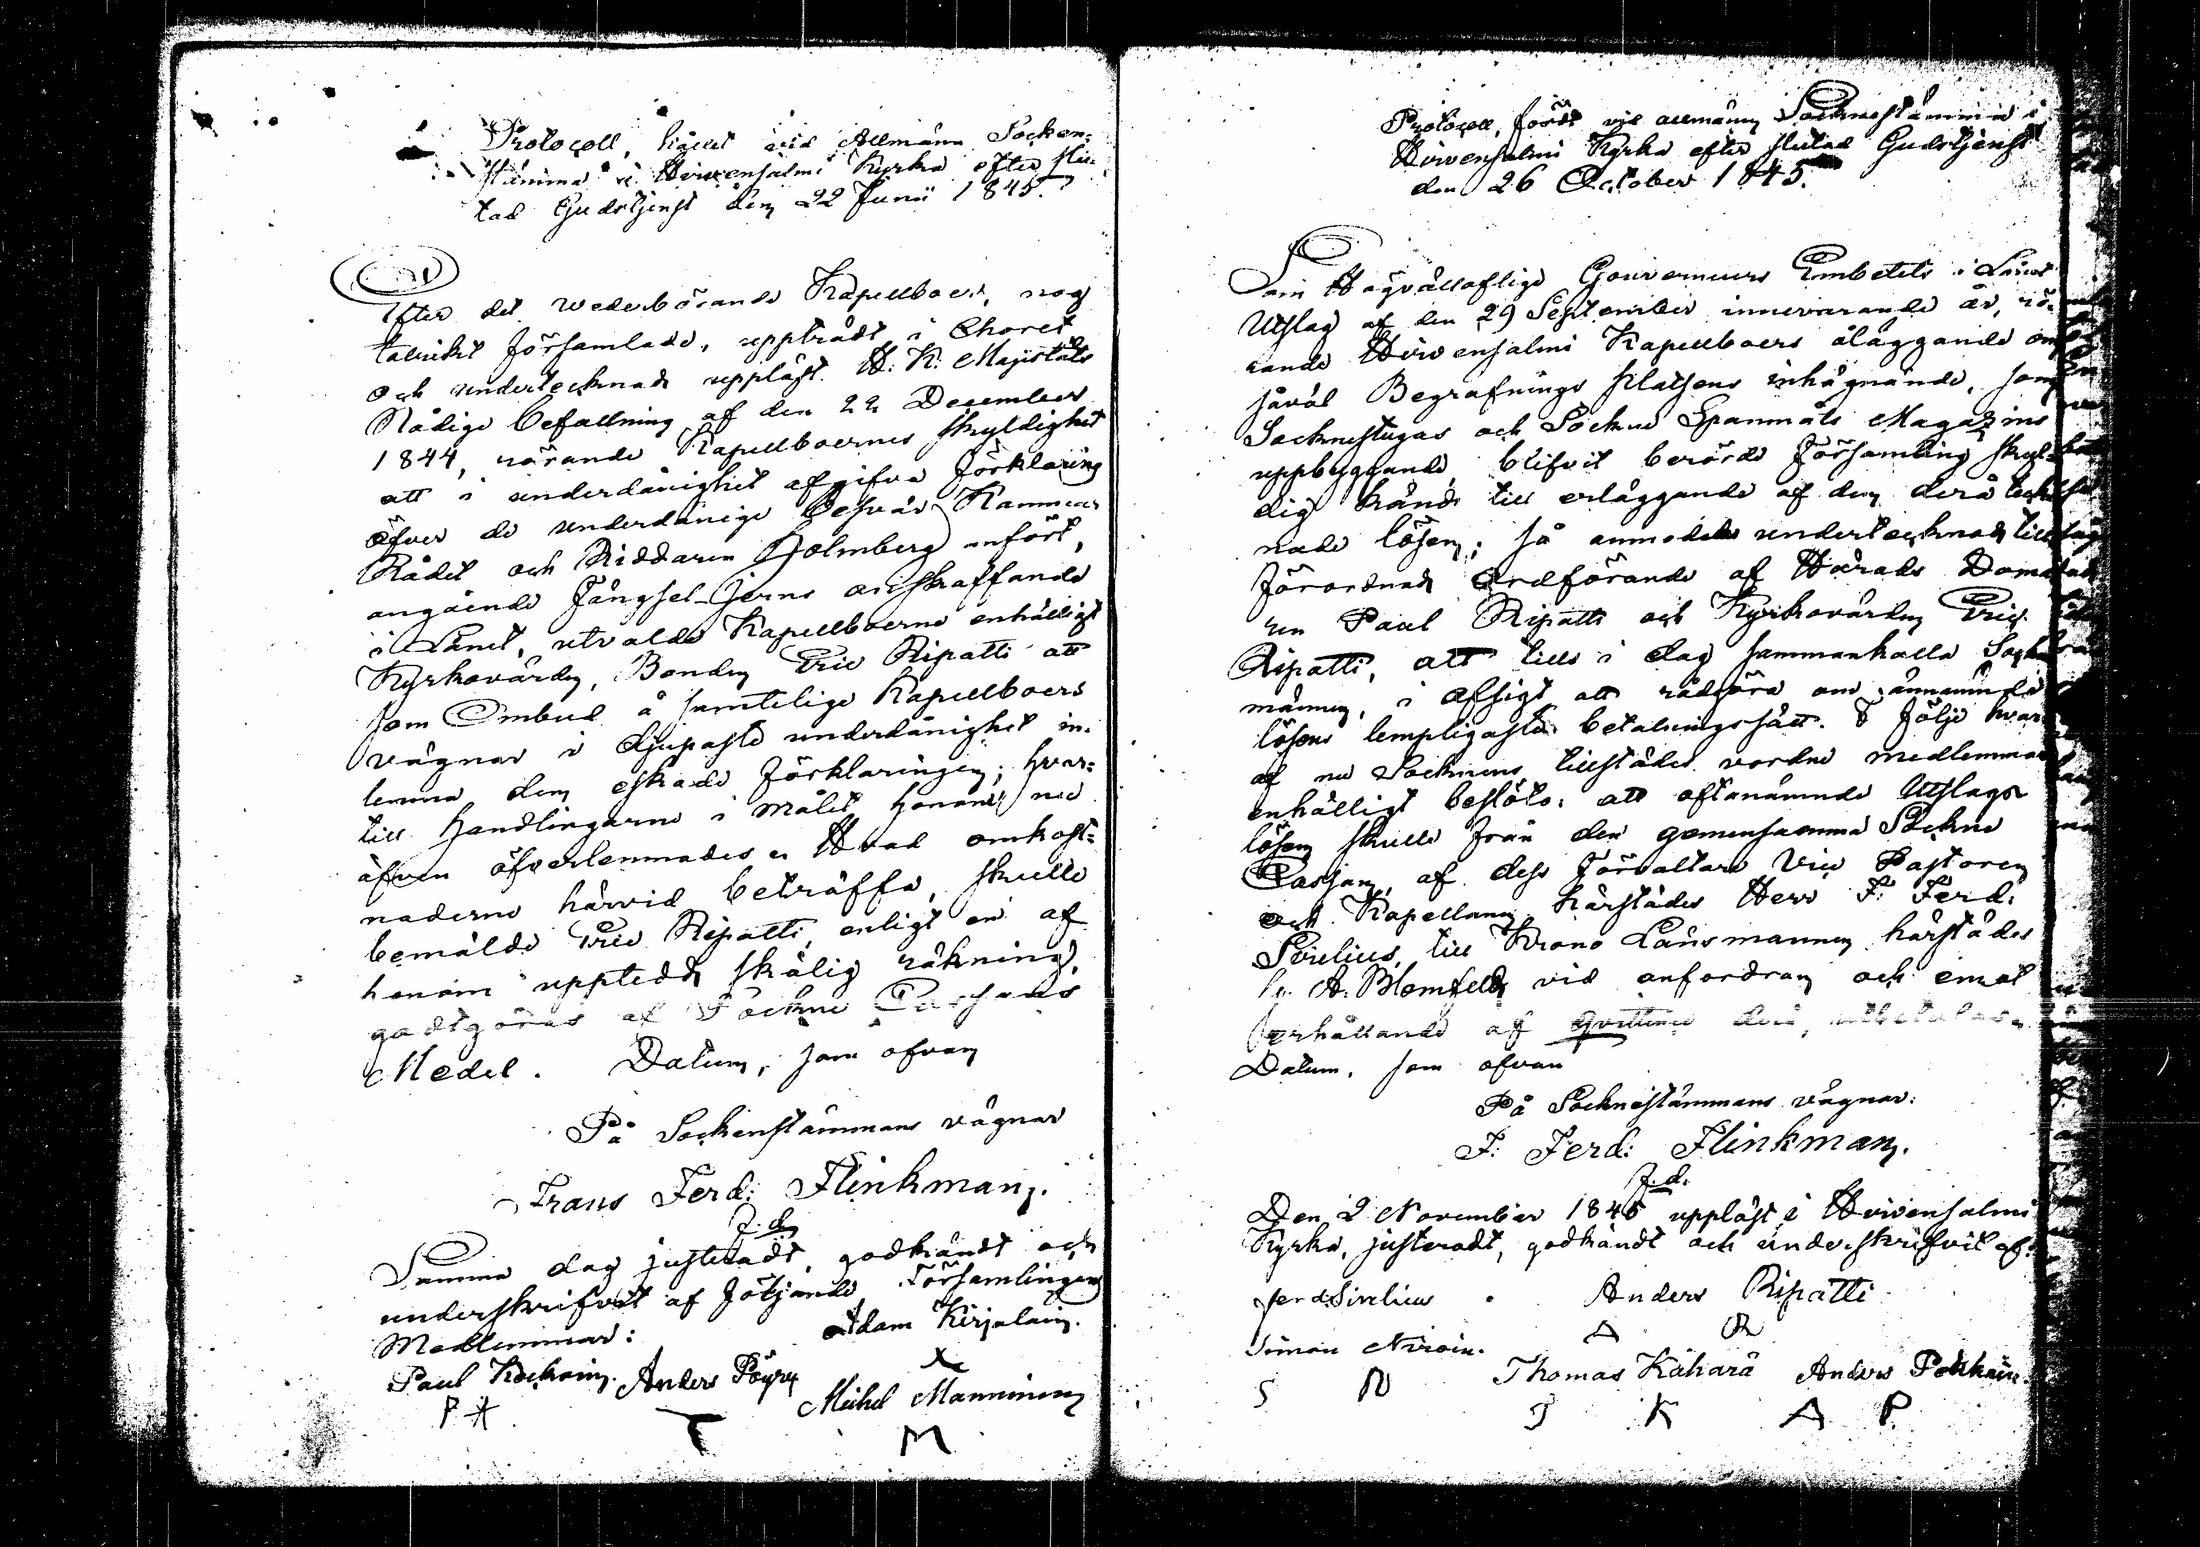 Protocoll, hållet vid Allmänn Socken-
stämma i Hirvensalmi Kyrka efter slu-
tad Gudstjenst den 22 Junii 1845.
Efter det wederbörande Kapellboer, nog
talrikt församlade, uppträdt i Choret
och undertecknad uppläst H. K. Majestäts
Nådige befallning af den 22 December
1844, rörande Kapellboernes skyldighet
att i underdånighet afgifva förklaring
öfver de underdånige besvär Kammar-
Rådet och Riddaren Holmberg anfört,
angående Fängsel-jerns anskaffande
i Länet, utvalde Kapellboerne enhälligt
Kyrkovärden, Bonden Eric Ripatti att
som Ombud å samtelige Kapellboers
vägnar i djupaste underdånighet in-
lemna den eskade förklaringen; hvar-
till handlingarne i målet honom nu
äfven öfverlemnades. Hvad omkost-
naderne härvid beträffa, skulle
bemälde Eric Ripatti enligt en af
honom uppledd skälig räkning,
godtgöras af Sockne Cassans
Medel. Datum, som ofvan
På Sockenstämmans vägnar
Frans Ferd: Flinkman.
Samma dag justeradt, godkändt och
underskrifvit af följande Församlingens
Medlemmar:
Adam Kirjalain.
Paul Anders Pöyry
Michel Manninen
P H T M
Protocoll, fördt vid allmänn Socknestämma i
Hirvensalmi Kyrka efter slutad Gudstjenst
den 26 October 1845.
Som Högvälloflige Gouverneurs Embetets i Länet
Utslag af den 29 September innevarande år, rö-
rande Hirvensalmi Kapellboers åläggande om
såväl Begrafnings platsens inhägnande, som
Socknestugas och Sockne Spanmåls Magazins
uppbyggande, blifvit berörde Församling skyl-
dig känd till erläggande af den derå teck-
nade lösen; så anmodade undertecknad till
förordnad Ordförande af Härads Doma-
ren Paul Ripatti och Kyrkovärden Eric
Ripatti, att till i dag sammankalla Socken
männen, i afsigt att rådgöra om ännämnde
lösens lempligaste betalningssätt. I följe hvar-
af nu Socknens tillstädes vordne medlemmar
enhälligt beslöto: att oftanämnde Utslags
lösen skulle från den gemensamma Sockne
Cassan, af dess Förvaltare Vice Pastoren
och Kapellanen härstädes Herr F. Ferd.
Sirelius, till Krono Länsmannen härstädes
Hr. A. Blomfeldt vid anfordran och emot
erhållande af qvittence derå, utbetalas.
Datum, som ofvan
På Socknestämmans vägnar:
F. Ferd: Flinkman.
Den 2 November 1845 uppläst i Hirvensalmi
Kyrka, justeradt, godkändt och underskrifvit af:
Ferd. Sirelius Anders Ripatti
A R
Simon
Thomas Kähärä Anders
S N T K A P